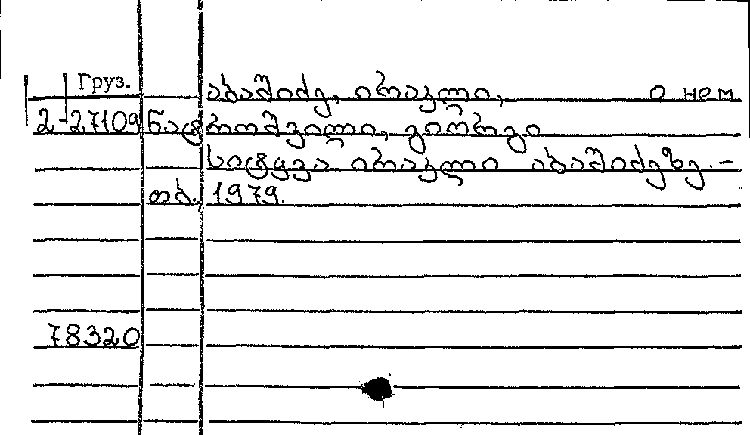 Груз. აბაშიძე, ირაკლი, о нем
2-27109 ნატროშვილი, გიორგი
სიტყვა ირაკლი აბაშიძეზე.–
თბ., 1979.
78320